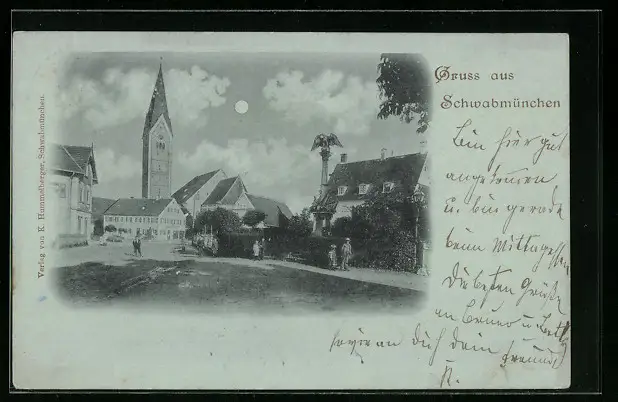 Gruss aus
Schwabmünchen
Verlag von K. Hummelberger, Schwabmünchen.
Bin hier gut
angekommen
u. bin gerade
beim Mittagessen
Die besten Grüße
an Bruno u.
sowie an Dich Dein Freund
K.